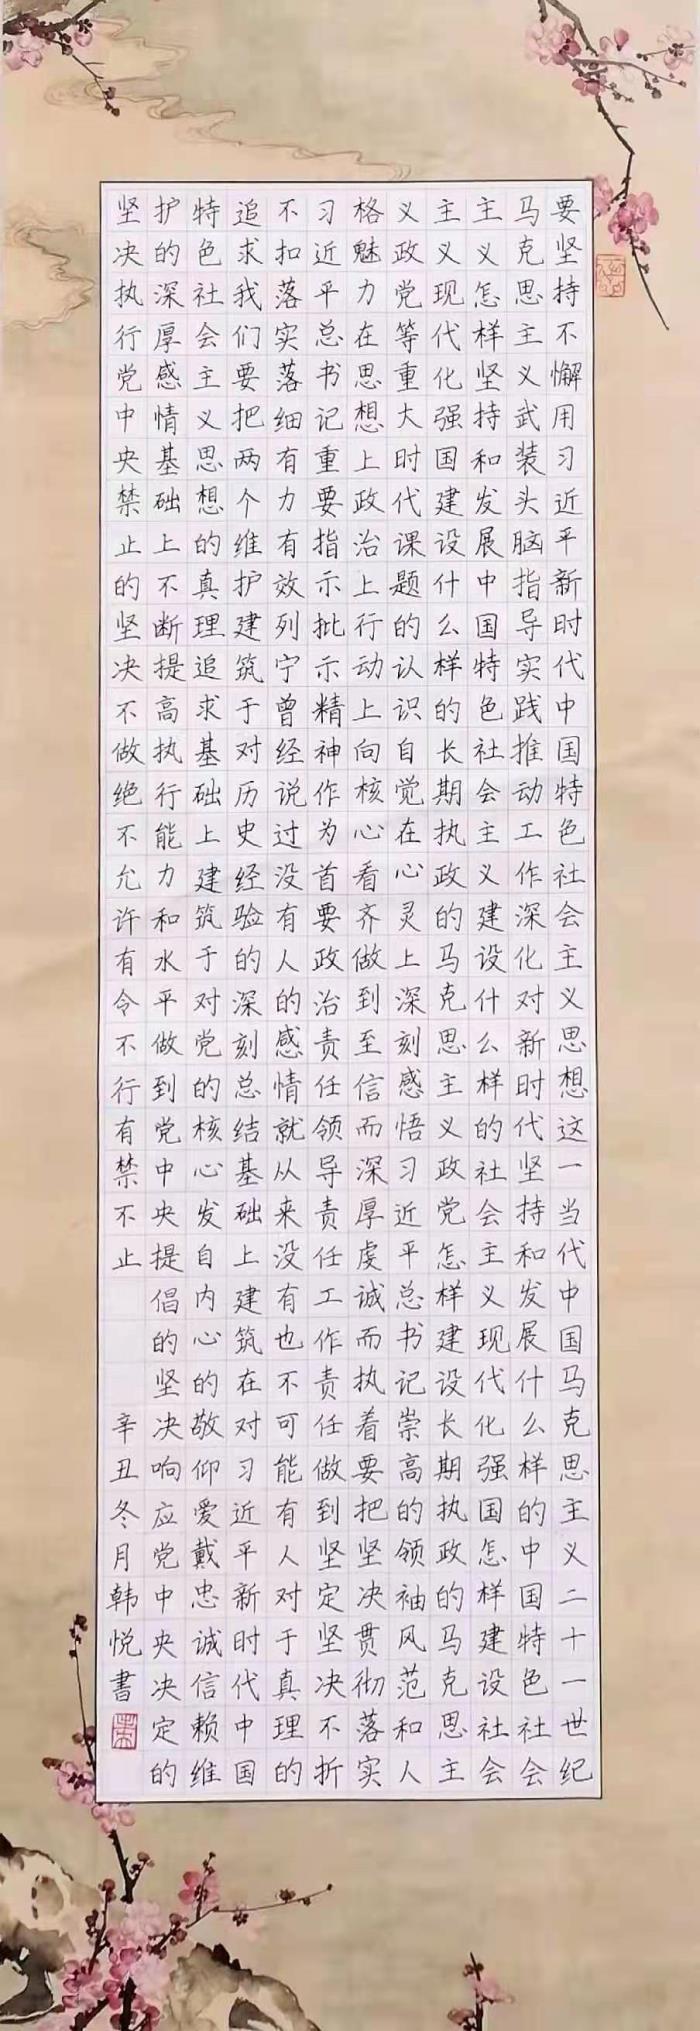 要坚持不懈用习近平新时代中国特色社会主义思想这一当代中国马克思主义二十一世纪
马克思主义武装头脑指导实践推动工作深化对新时代坚持和发展什么样的中国特色社会
主义怎样坚持和发展中国特色社会主义建设什么样的社会主义现代化强国怎样建设社会
主义现代化强国建设什么样的长期执政的马克思主义政党怎样建设长期执政的马克思主
义政党等重大时代课题的认识自觉在心灵上深刻感悟习近平总书记崇高的领袖风范和人
格魅力在思想上政治上行动上向核心看齐做到至信而深厚虔诚而执着要把坚决贯彻落实
习近平总书记重要指示批示精神作为首要政治责任领导责任工作责任做到坚定坚决不折
不扣落实落细有力有效列宁曾经说过没有人的感情就从来没有也不可能有人对于真理的
追求我们要把两个维护建筑于对历史经验的深刻总结基础上建筑在对习近平新时代中国
特色社会主义思想的真理追求基础上建筑于对党的核心发自内心的敬仰爱戴忠诚信赖维
护的深厚感情基础上不断提高执行能力和水平做到党中央提倡的坚决响应党中央决定的
坚决执行党中央禁止的坚决不做绝不允许有令不行有禁不止 辛丑冬月韩悦書